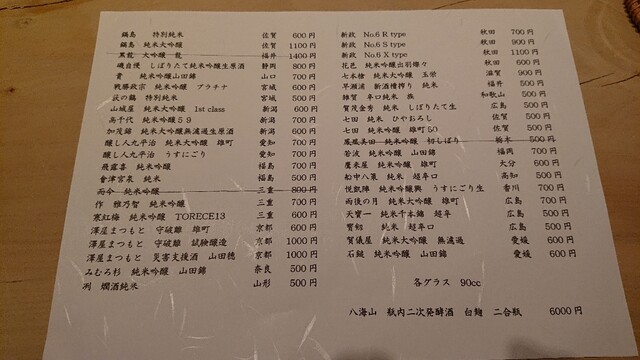 鍋島　特別純米　佐賀　600円
鍋島　純米大吟醸　佐賀　1100円
黒龍　大吟醸　龍　福井　1400円
磯自慢　しぼりたて純米吟醸生原酒　静岡　800円
貴　純米吟醸山田錦　山口　700円
戦勝政宗　純米吟醸　プラチナ　宮城　600円
萩の鶴　特別純米　宮城　500円
山城屋　純米大吟醸　1st class　新潟　700円
高千代　純米吟醸59　新潟　700円
加茂錦　純米大吟醸無濾過生原酒　新潟　600円
醸し人九平治　純米大吟醸　雄町　愛知　700円
醸し人九平治　うすにごり　愛知　700円
飛露喜　純米吟醸　福島　700円
會津宮泉　純米　福島　500円
而今　純米吟醸　三重　800円
作　雅乃智　純米吟醸　三重　700円
寒紅梅　純米吟醸　TORECE13　三重　600円
澤屋まつもと　守破離　雄町　京都　600円
澤屋まつもと　守破離　試験醸造　京都　1000円
澤屋まつもと　災害支援酒　山田穂　京都　1000円
みむろ杉　純米吟醸　山田錦　奈良　500円
冽　燗酒純米　山形　500円
新政　No.6 R type　秋田　700円
新政　No.6 S type　秋田　900円
新政　No.6 X type　秋田　1100円
花邑　純米吟醸出羽燦々　秋田　600円
七本槍　純米大吟醸　玉栄　滋賀　900円
早瀬浦　新酒槽搾り　純米　福井　500円
雑賀　辛口純米　族　和歌山　500円
賀茂金秀　純米　しぼりたて生　広島　500円
七田　純米　ひやおろし　佐賀　500円
七田　純米吟醸　雄町50　佐賀　500円
鳳凰美田　純米吟醸　初しぼり　栃木　500円
若波　純米吟醸　山田錦　福岡　700円
鷹来屋　純米吟醸　雄町　大分　600円
船中八策　純米　超辛　高知　500円
悦凱陣　純米吟醸興　うすにごり生　香川　700円
雨後の月　純米大吟醸　雄町　広島　700円
天寶一　純米千本錦　超辛　広島　500円
寶劔　純米　超辛口　広島　500円
賀儀屋　純米大吟醸　無濾過　愛媛　600円
石鎚　純米吟醸　山田錦　愛媛　600円
各グラス　90cc
八海山　瓶内二次発酵酒　白麹　二合瓶　6000円